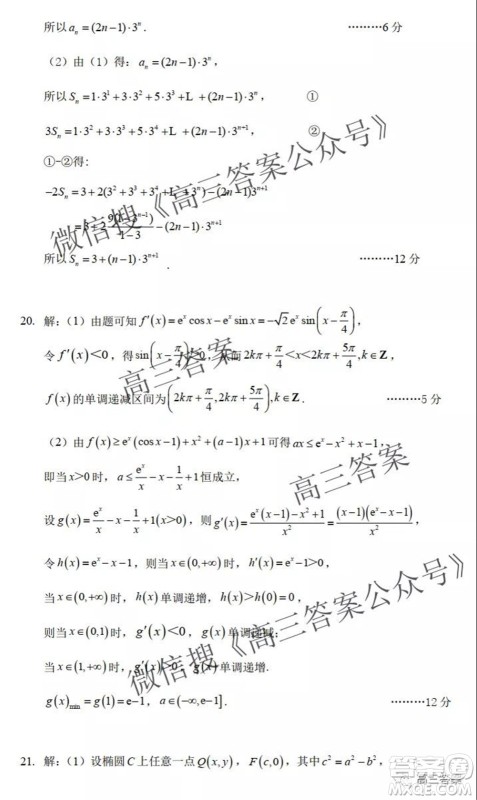 所以 aₙ=(2n−1)·3ⁿ. ………6 分
（2）由（1）得：aₙ=(2n−1)·3ⁿ，
所以 Sₙ=1·3¹+3·3²+5·3³+L+(2n−1)·3ⁿ， ①
3Sₙ=1·3²+3·3³+5·3⁴+L+(2n−1)·3ⁿ⁺¹ ②
①-②得:
−2Sₙ=3+2(3²+3³+3⁴+L+3ⁿ)−(2n−1)3ⁿ⁺¹
−(2n−1)·3ⁿ⁺¹
所以 Sₙ=3+(n−1)·3ⁿ⁺¹. ………12 分
20. 解：（1）由题可知 f′(x)=eˣcos x−eˣsin x=−√2eˣsin(x−π/4)，
令 f′(x)<0，得 sin(x−π/4)>0，从而 2kπ+π/4<x<2kπ+5π/4,k∈Z，
f(x) 的单调递减区间为(2kπ+π/4,2kπ+5π/4),k∈Z. ………5 分
（2）由 f(x)≥eˣ(cos x−1)+x²+(a−1)x+1 可得 ax≤eˣ−x²+x−1，
即当 x>0 时，a≤eˣ/x−x−1/x+1 恒成立，
设 g(x)=eˣ/x−x−1/x+1(x>0)，则 g′(x)=(eˣ(x−1)−x²+1)/x²=((x−1)(eˣ−x−1))/x²，
令 h(x)=eˣ−x−1，则当 x∈(0,+∞) 时，h′(x)=eˣ−1>0，
当 x∈(0,+∞) 时，h(x) 单调递增，h(x)>h(0)=0，
则当 x∈(0,1) 时，g′(x)<0，g(x) 单调递减；
当 x∈(1,+∞) 时，g′(x)>0，g(x) 单调递增.
g(x)min=g(1)=e−1，a∈(−∞,e−1]. ………12 分
21. 解：（1）设椭圆 C 上任意一点 Q(x,y)，F(c,0)，其中 c²=a²−b²，
微信搜《高三答案公众号》
高三答案
高三答案
微信搜《高三答案公众号》
高三答案
答案圈
MXQE.COM